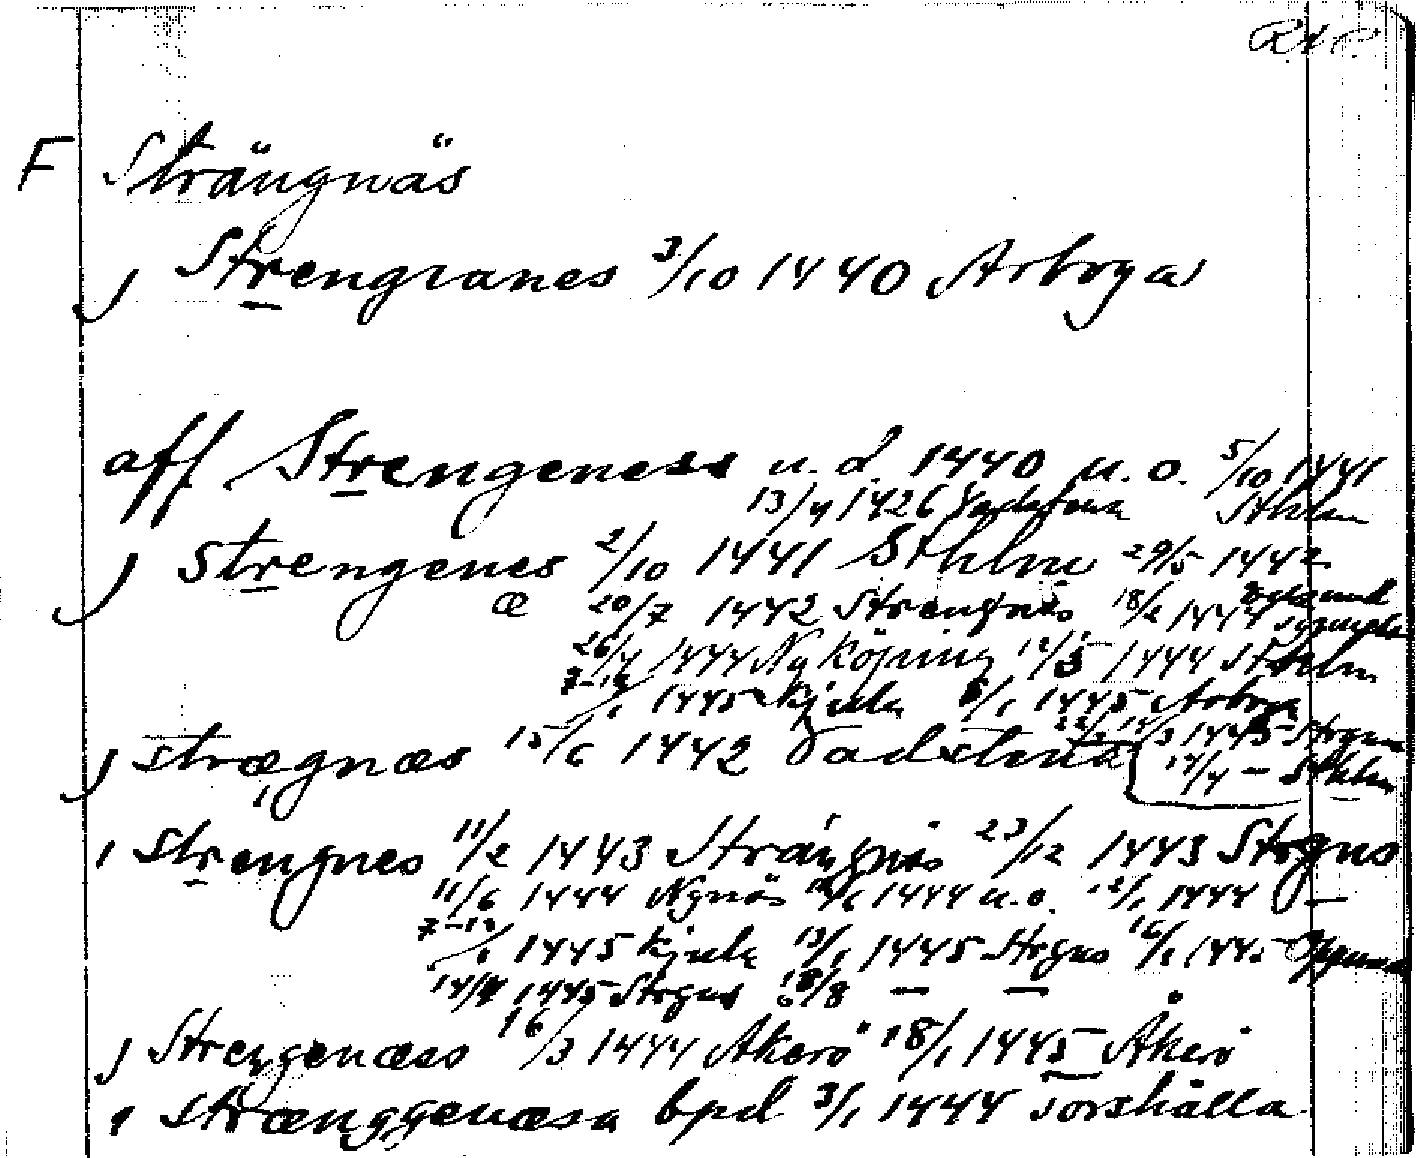 F Strängnäs
j Strengianes 3/10 1440 Arboga
aff Strengeness u. d. 1440 u. o. 5/10 1441
13/4 1426 Vadstena Sthlm
j Strengenes 2/10 1441 Sthlm 29/5 1442
æ 20/7 1442 Strengnäs 18/2 1444
26/4 1444 Nyköping 12/5 1444 Sthlm
7-12/1 1445 Kjula 8/1 1445 Arboga
j strægnæs 15/6 1442 Vadstena 1445 Strgns
14/4 — Sthlm
i strengnes 11/2 1443 Strängnäs 23/12 1443 Strgns
11/6 1444 Nynäs 1444 u.o. 12/1 1444 —
7-12/1 1445 Kjula 13/1 1445 Strgns 16/1 1445
14/4 1445 Strgns 18/8 — —
j Strengenæss 16/3 1444 Åkerö 18/1 1445 Åkerö
i strænggenæsa bpd 3/1 1444 Torshälla